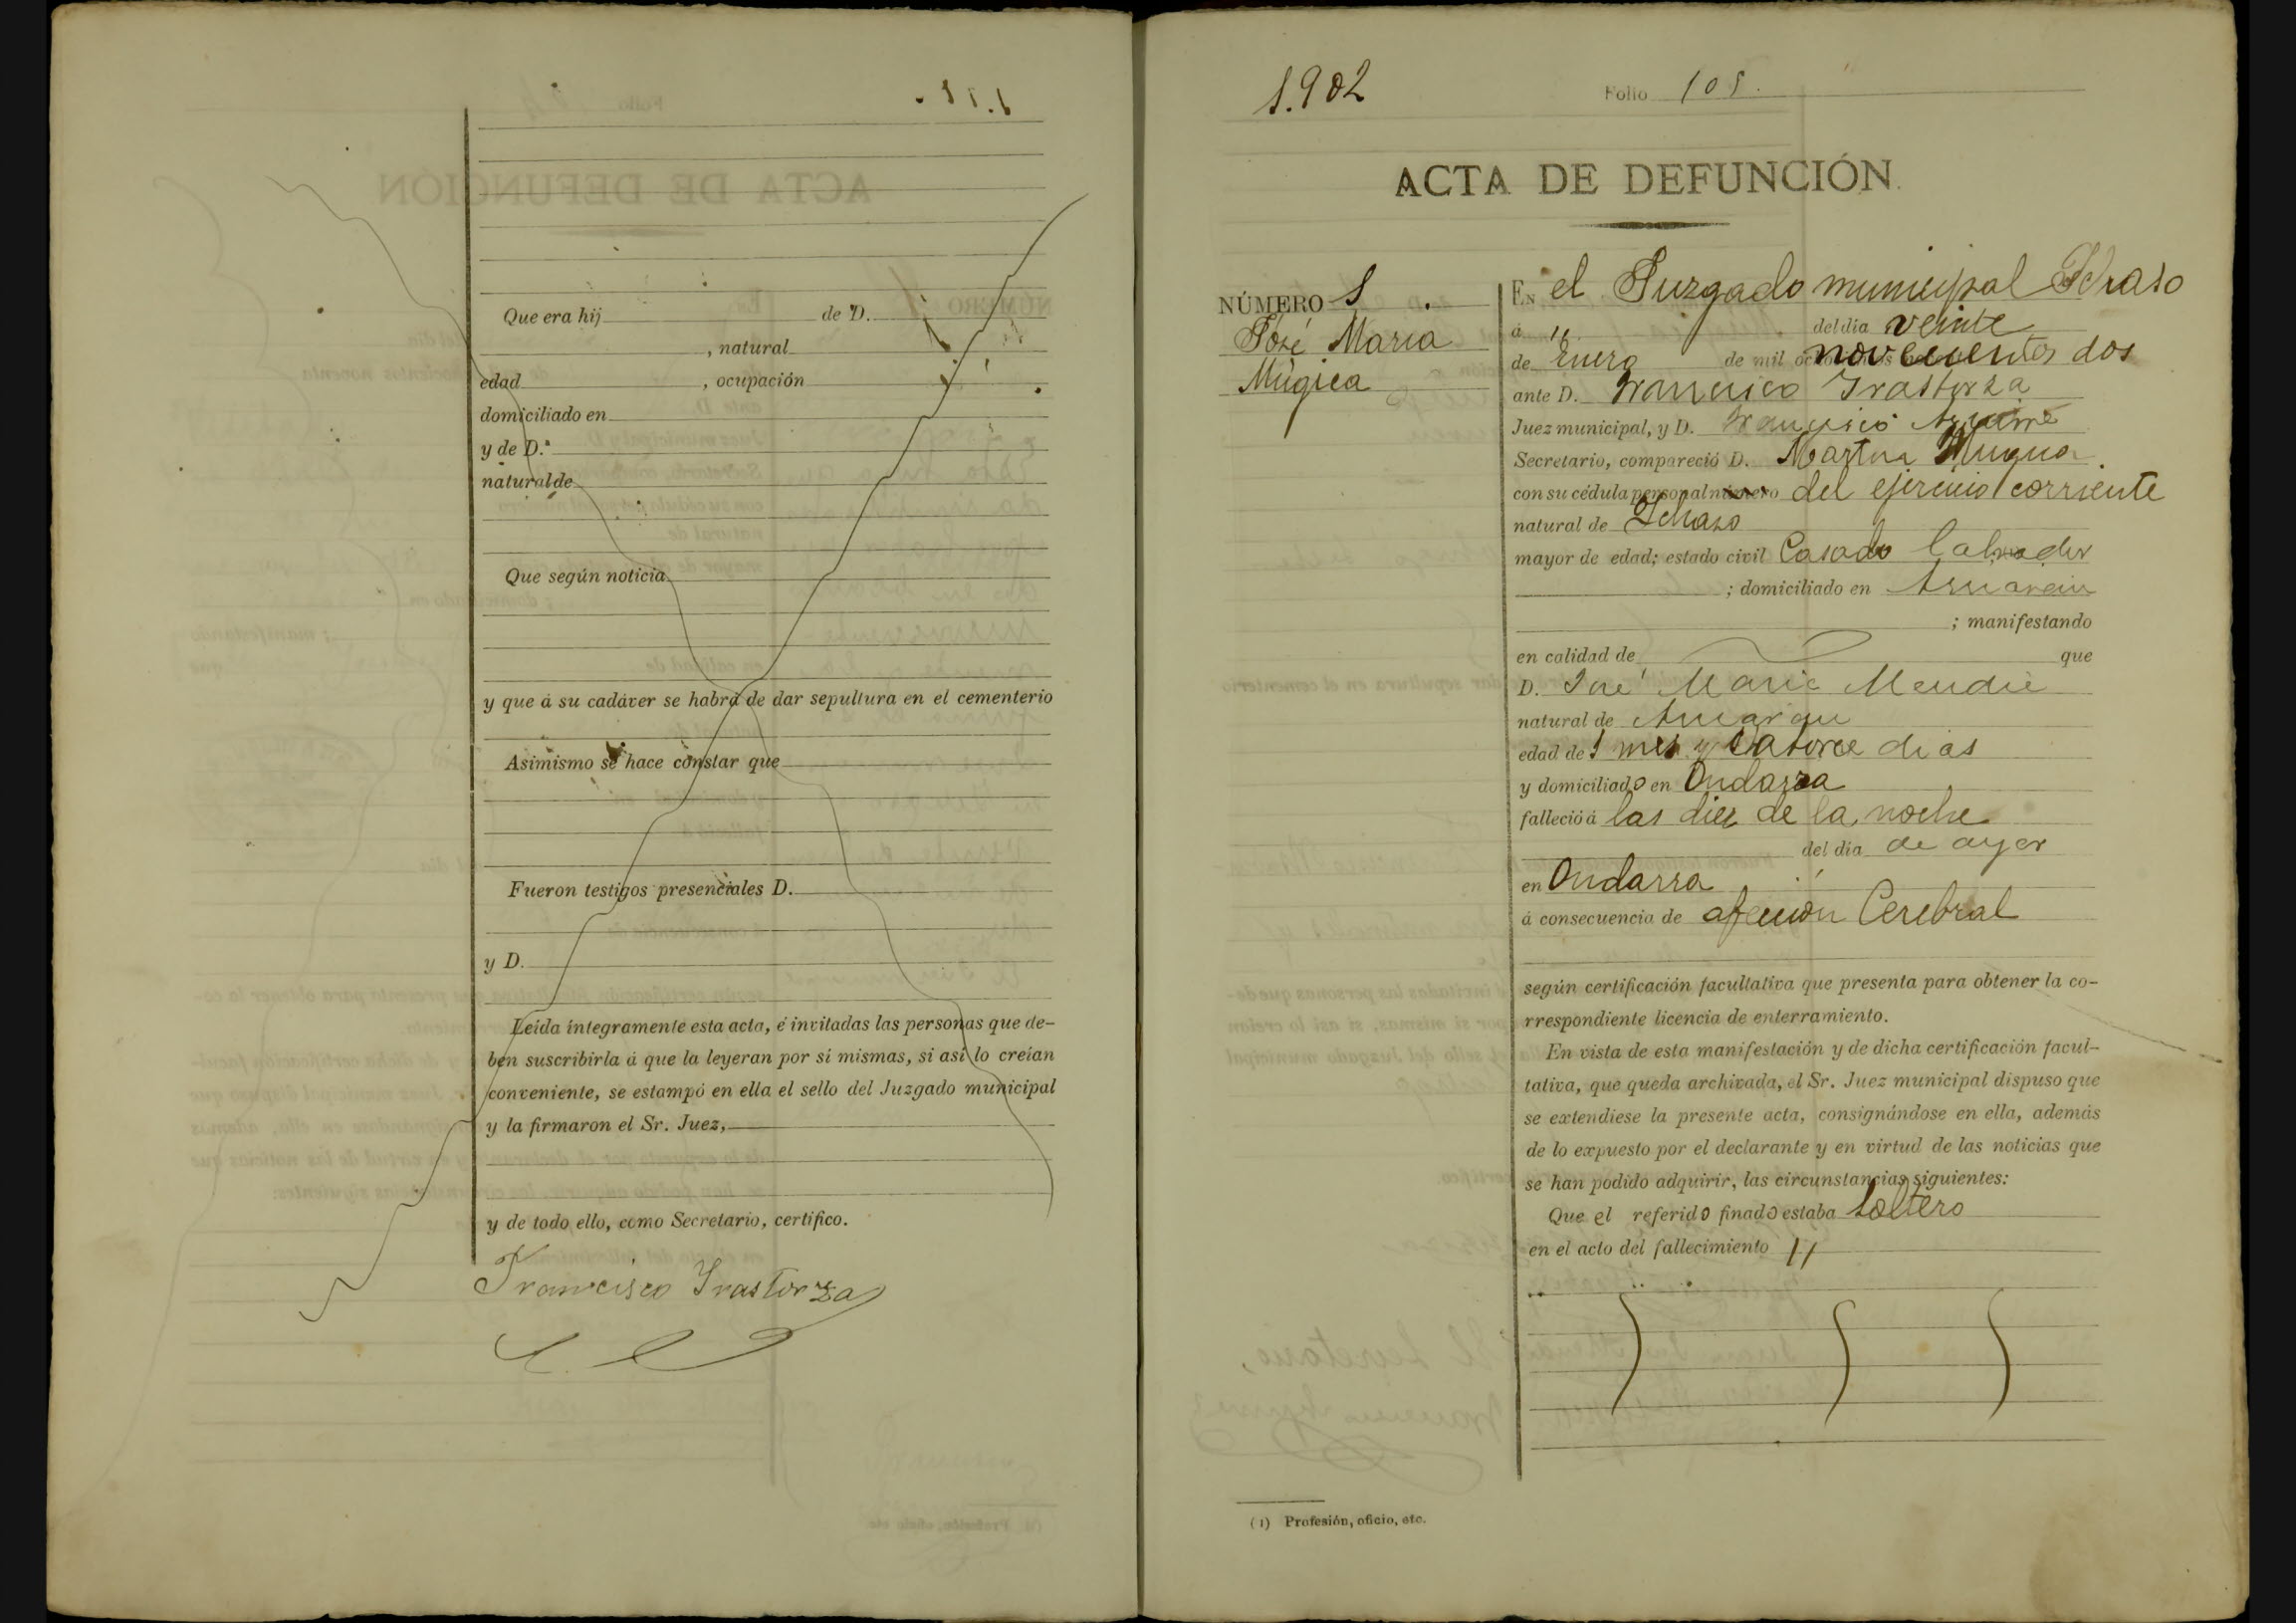 Que era hij de D.
, natural
edad , ocupación
domiciliado en
y de D.ª
natural de
Que según noticia
y que á su cadáver se habrá de dar sepultura en el cementerio
Asimismo se hace constar que
Fueron testigos presenciales D.
y D.
Leída íntegramente esta acta, é invitadas las personas que de-
ben suscribirla á que la leyeran por sí mismas, si así lo creían
conveniente, se estampó en ella el sello del Juzgado municipal
y la firmaron el Sr. Juez,
y de todo ello, como Secretario, certifico.
Francisco Irastorza
1.902
Folio 101.
ACTA DE DEFUNCIÓN.
NÚMERO 1.
José María
Múgica
En el Juzgado municipal
á " del día veinte
de Enero de mil novecientos dos
ante D. Francisco Irastorza
Juez municipal, y D. Francisco Aguirre
Secretario, compareció D. Martin Mugica.
con su cédula personal número del ejercicio corriente
natural de Ichaso
mayor de edad; estado civil Casado labrador
; domiciliado en
; manifestando
en calidad de que
D. José Maria
natural de
edad de 1 mes y Catorce dias
y domiciliado en Ondarra
falleció á las diez de la noche
del día de ayer
en Ondarra
á consecuencia de afeccion Cerebral
según certificación facultativa que presenta para obtener la co-
rrespondiente licencia de enterramiento.
En vista de esta manifestación y de dicha certificación facul-
tativa, que queda archivada, el Sr. Juez municipal dispuso que
se extendiese la presente acta, consignándose en ella, además
de lo expuesto por el declarante y en virtud de las noticias que
se han podido adquirir, las circunstancias siguientes:
Que el referido finado estaba Soltero
en el acto del fallecimiento "
(1) Profesión, oficio, etc.